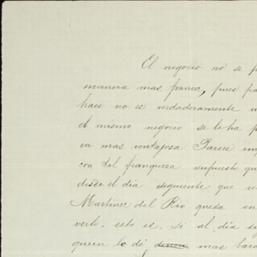 El negocio no se p
manera mas franca, pues pa
hace no es verdaderamente u
el mismo negocio se le ha p
va mas ventajosa Parece imp
con tal franqueza supuesto qu
desea el dia siguiente que u
Martinez del Rio queda en
verte, esto es, si al dia se
quien lo dé mas bara